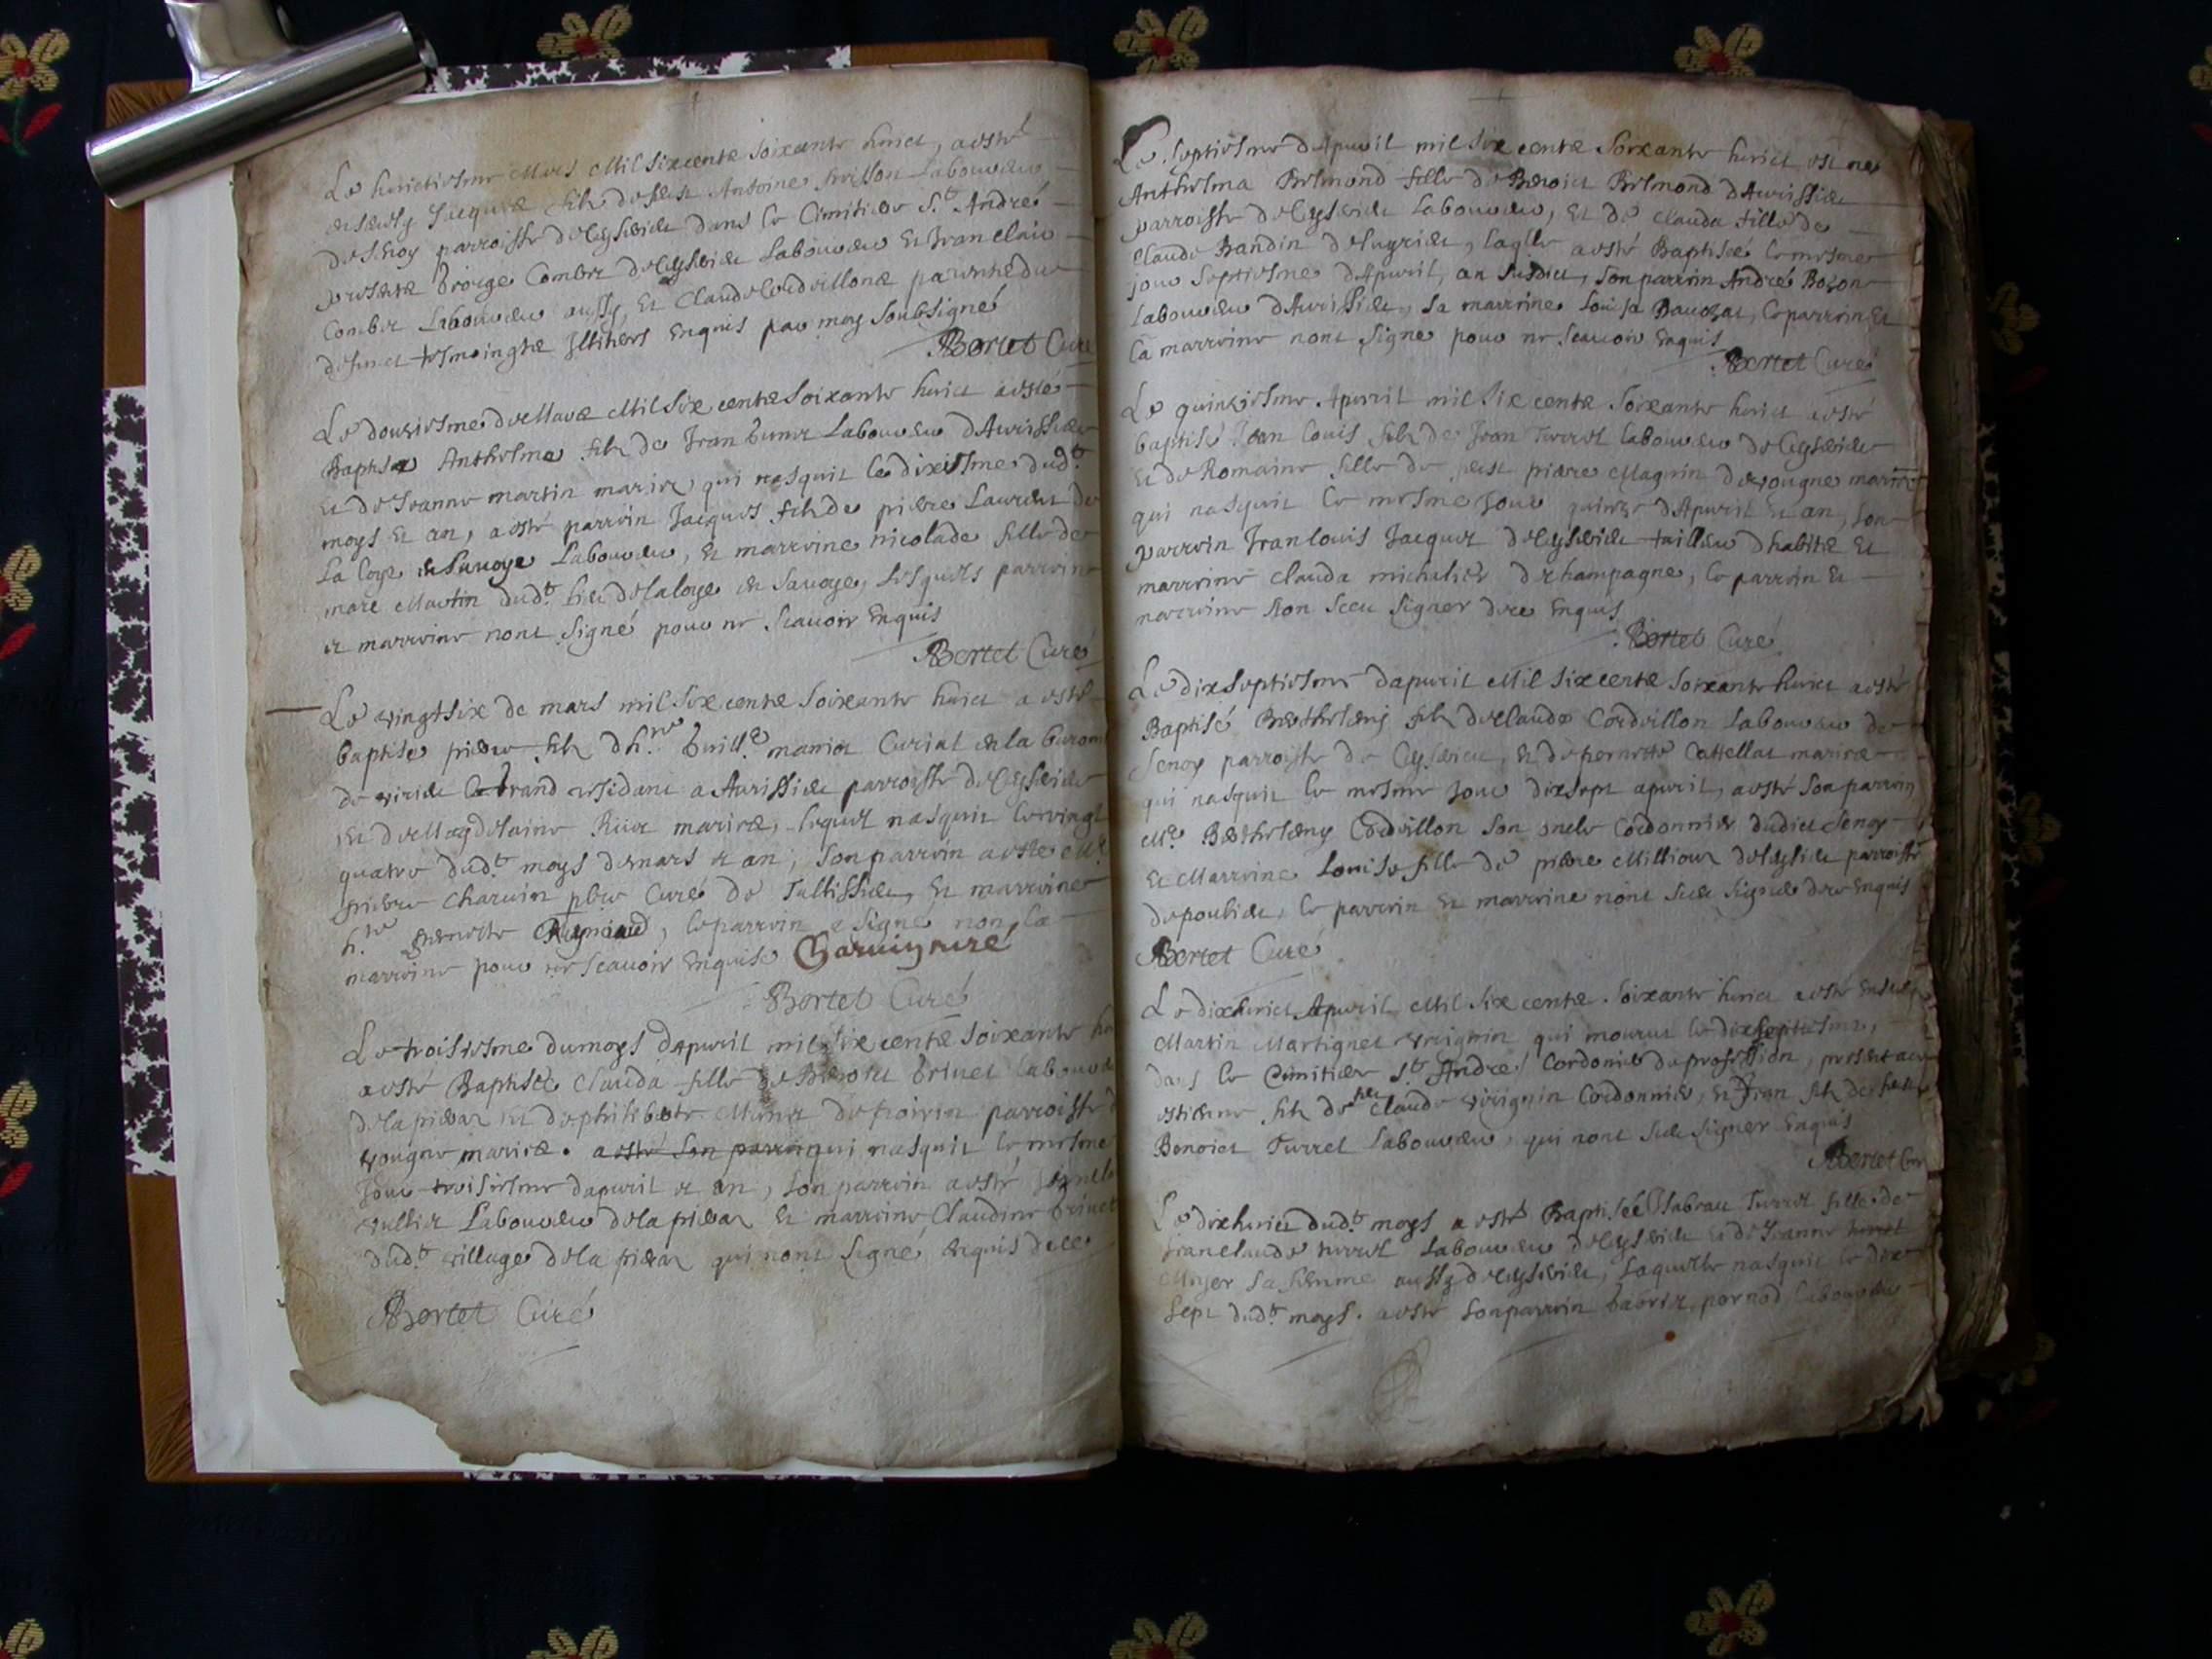 Le huictiesme Mars Mil six cents soixante huict, a esté
ensevely Jacques filz de feust Antoine laboureur
de Senoy parroisse de Ceyserieu dans le Cimitiere St. André
presents George Combet de Ceyserieu Laboureur et Jean Clau
Combet Laboureur aussy, et Claude Cordeillon parents du
défunct tesmoings Illiters enquis par moy soubsigné
Bertet Curé
Le douziesme de Mars Mil six cents soixante huict a esté
Baptisé Anthelme filz de Jean Laboureur d'Avrissieu
et de Jeanne martin mariez, qui nasquit le dixiesme dudt.
moys et an, a esté parrein Jacques filz de pierre Laurent de
La Loye en Savoye Laboureur, et marreine nicolade fille de
marc Martin dudt. lieu de la loye en Savoye, lesquels parrein
et marreine nont signé pour ne scavoir enquis
Bertet Curé
Le vingt six de mars mil six cents soixante huict a esté
baptisé pierre filz d'h.re Curial de la
de virieu le Grand residant a Avrissieu parroisse de Ceyserieu
et de Magdelaine mariez, lequel nasquit le vingt
quatre dudt. moys de mars et an, son parrein a esté Mre.
pierre Charvin pbre Curé de Talissieu, et marreine
h.te pernette, le parrein a signé non la
marreine pour ne scavoir enquise Charvin curé
Bertet Curé
Le troisiesme du moys d'apvril mil six cents soixante hu
a esté Baptisée Clauda fille de Benoict Brinet labour
de la pierre et de philiberte parroisse
vougne mariez. a esté son parrein qui nasquit le mesme
Jour troisiesme d'apvril et an, son parrein a esté
Laboureur de la pierre et marreine Claudine Brinet
dudt. village de la pierre qui nont signé, enquis de ce
Bertet Curé
Le septiesme d'Apvril mil six cents soixante huict est née
Anthelma Belmond fille de Benoict Belmond d'Avrissieu
parroisse de Ceyserieu Laboureur, et de Clauda fille de
Claude Bandin de Lugrieu, laqlle a esté Baptisée le mesme
jour septiesme d'Apvril, an susdict, son parrein André Bozon
laboureur d'Avrissieu, sa marreine Louisa, le parrein et
la marreine nont signé pour ne scavoir enquis
Bertet Curé
Le quinziesme Apvril mil six cents soixante huict a esté
baptisé Jean Louis filz de Jean Turrel laboureur de Ceyserieu
et de Romaine fille de feust pierre Magnin de vougne mariez
qui nasquit le mesme Jour quinze d'Apvril et an, son
parrein Jean Louis Jacquet de Ceyserieu tailleur d'habits et
marreine Clauda michelier de champagne, le parrein et
marreine non sceu signer de ce enquis
Bertet Curé
Le dixseptiesme d'apvril Mil six cents soixante huict a esté
Baptisé Barthelemy filz de Claude Cordeillon Laboureur de
Senoy parroisse de Ceyserieu, et de pernette Cattellat mariez
qui nasquit le mesme jour dixsept apvril, a esté son parrein
Me. Barthelemy Cordeillon son oncle Cordonnier dudict Senoy
et Marreine Louise fille de pierre Millioux de parroisse
de poulieu, le parrein et marreine nont sceu signer de ce enquis
Bertet Curé
Le dixhuict Apvril Mil six cents soixante huict a esté ensevely
Martin Martignet qui mourut le dixseptiesme,
dans le Cimitiere St. André, Cordonier de profession, presents
estienne filz de feu Claude Cordonnier, et Jean filz de feust
Benoict Turrel Laboureur, qui nont sceu signer enquis
Bertet Cur
Le dixhuict dudt. moys a esté Baptisée Isabeau Turrel fille de
Jean Claude turrel Laboureur de Ceyserieu et de Jeanne turrel
Moyer sa femme aussy de Ceyserieu, laquelle nasquit le dix
sept dudt. moys. a esté son parrein pernod laboureur